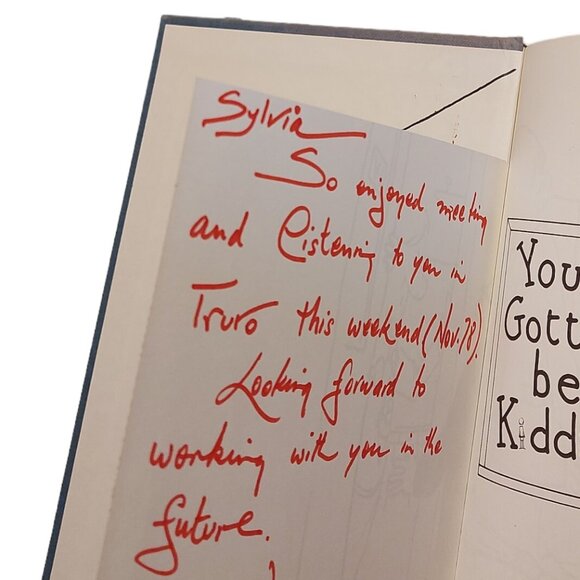 Sylvia
So enjoyed meeting
and Listening to you in
Truro this weekend (Nov. 78).
Looking forward to
working with you in the
future.
You
Gott
be
Kidd